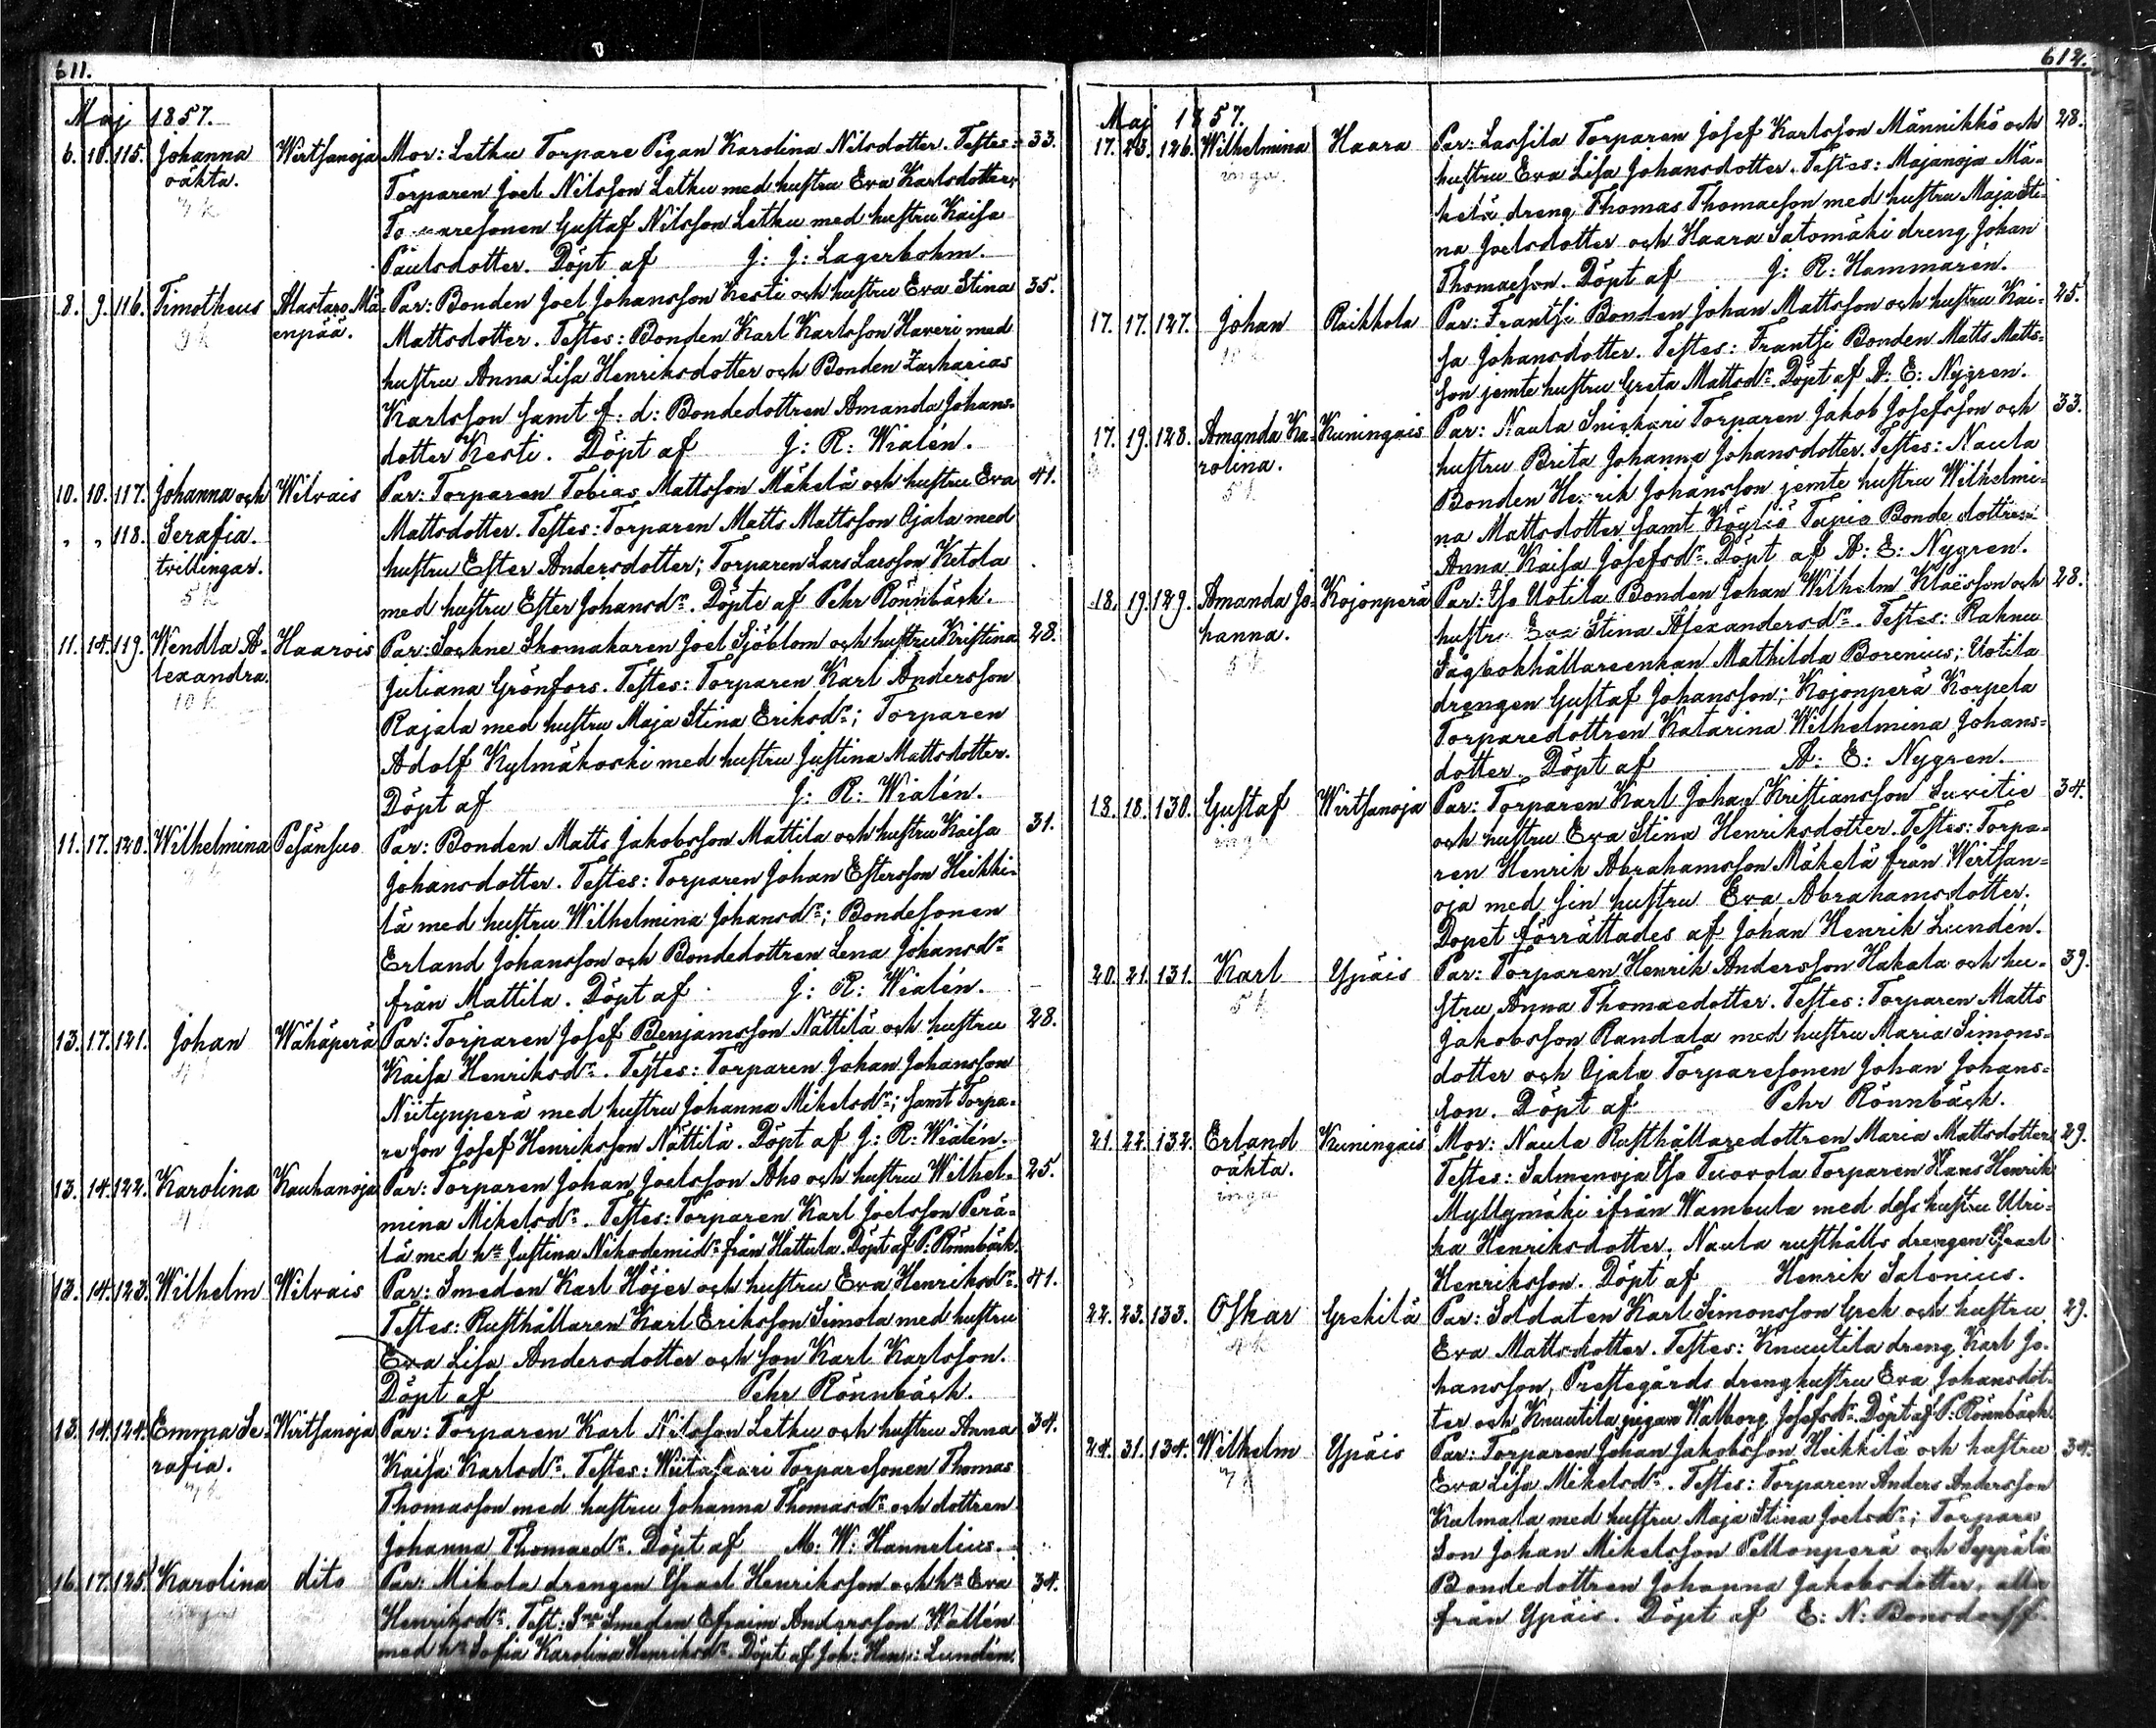 611.
Maj 1857.
6. 10. 115. Johanna Wirtsanoja Mor: Letku Torpare Pigan Karolina Nilsdotter. Testes: 33.
oäkta. Torparen Joel Nilsson Letku med hustru Eva Karlsdotter,
Gustaf Nilsson Letku med hustru Kaisa
Paulsdotter. Döpt af J: J: Lagerbohm.
8. 9. 116. Timotheus Alastaro Mä- Par: Bonden Joel Johansson Kesti och hustru Eva Stina 35.
enpää. Mattsdotter. Testes: Bonden Karl Karlsson Haveri med
hustru Anna Lisa Henriksdotter och Bonden Zacharias
Karlsson samt A: d: Bondedottren Amanda Johans-
dotter Kesti. Döpt af J: R: Wialén.
10. 10. 117. Johanna och Wilvais Par: Torparen Tobias Mattsson Mäkelä och hustru Eva 41.
" " 118. Serafia. Mattsdotter. Testes: Torparen Matts Mattsson Ojala med
tvillingar. hustru Ester Andersdotter; Torparen Lars Larsson Ketola
5 k med hustru Ester Johansdr. Döpte af Pehr Rönnbäck.
11. 14. 119. Wendla A- Haarois Par: Sockne Skomakaren Joel Sjöblom och hustru Kristina 28.
lexandra. Juliana Grönfors. Testes: Torparen Karl Andersson
10 k Rajala med hustru Maja Stina Eriksdr; Torparen
Adolf Kylmäkoski med hustru Justina Mattsdotter.
Döpt af J: R: Wialén.
11. 17. 120. Wilhelmina Pesänsuo Par: Bonden Matts Jakobsson Mattila och hustru Kaisa 31.
Johansdotter. Testes: Torparen Johan Estersson Heikki-
lä med hustru Wilhelmina Johansdr; Bondesonen
Erland Johansson och Bondedottren Lena Johansdr
från Mattila. Döpt af J: R: Wialén.
13. 17. 121. Johan Wähäperä Par: Torparen Josef Benjamsson Nättilä och hustru 28.
Kaisa Henriksdr. Testes: Torparen Johan Johansson
Niitynperä med hustru Johanna Mikelsdr; samt Torpa-
re son Josef Henriksson Nättilä. Döpt af J: R: Wialén.
13. 14. 122. Karolina Kauhanoja Par: Torparen Johan Joelsson Aho och hustru Wilhel- 25.
mina Mikelsdr. Testes: Torparen Karl Joelsson Perä-
lä med hu Justina Nikodemidr från Hattula. Döpt af P: Rönnbäck.
13. 14. 123. Wilhelm Wilvais Par: Smeden Karl Höjer och hustru Eva Henriksdr. 41.
Testes: Rusthållaren Karl Eriksson Simola med hustru
Eva Lisa Andersdotter och son Karl Karlsson.
Döpt af Pehr Rönnbäck.
13. 14. 124. Emma Se- Wirtsanoja Par: Torparen Karl Nilsson Letku och hustru Anna 34.
rafia. Kaisa Karlsdr. Testes: Torparesonen Thomas
Thomasson med hustru Johanna Thomasdr och dottren
Johanna Thomaedr. Döpt af M: W: Hannelius.
16. 17. 125. Karolina dito Par: Mikola drengen Israel Henriksson och hu Eva 34.
Henriksdr. Test: Sne Smeden Efraim Andersson Wallén
med hu Sofia Karolina Henriksdr. Döpt af Joh: Henr: Lundén.
612.
Maj 1857.
17. 23. 126. Wilhelmina Haara Par: Lassila Torparen Josef Karlsson Männikkö och 28.
inga. hustru Eva Lisa Johansdotter. Testes: Majanoja Mä-
kelä dreng Thomas Thomaesson med hustru Maja Sti-
na Joelsdotter och Haara Satomäki dreng Johan
Thomaesson. Döpt af J: R: Hammarén.
17. 17. 127. Johan Raikkola Par: Frantsi Bonden Johan Mattsson och hustru Kai- 25.
10 k sa Johansdotter. Testes: Frantsi Bonden Matts Matts-
son jemte hustru Greta Mattsdr. Döpt af A: E: Nygren.
17. 19. 128. Amanda Ka- Kuningais Par: Naula Snickari Torparen Jakob Josefsson och 33.
rolina. hustru Brita Johanna Johansdotter. Testes: Naula
5 k Bonden Henrik Johansson jemte hustru Wilhelmi-
na Mattsdotter samt Köyliö Tapio Bonde dottren
Anna Kaisa Josefsdr. Döpt af A: E: Nygren.
18. 19. 129. Amanda Jo- Kojonperä Par: Iso Uotila Bonden Johan Wilhelm Klaësson och 28.
hanna. hustru Eva Stina Alexandersdr. Testes: Rahnu
5 k Sågbokhållareenkan Mathilda Borenius; Uotila
drengen Gustaf Johansson; Kojonperä Korpela
Torparedottren Katarina Wilhelmina Johans-
dotter. Döpt af A: E: Nygren.
18. 18. 130. Gustaf Wirtsanoja Par: Torparen Karl Johan Kristiansson Suvitie 34.
inga och hustru Eva Stina Henriksdotter. Testes: Torpa-
ren Henrik Abrahamsson Mäkelä från Wirtsan-
oja med sin hustru Eva Abrahamsdotter.
Dopet förrättades af Johan Henrik Lundén.
20. 21. 131. Karl Ypäis Par: Torparen Henrik Andersson Hakala och hu- 39.
5 k stru Anna Thomaedotter. Testes: Torparen Matts
Jakobsson Randala med hustru Maria Simons-
dotter och Ojala Torparesonen Johan Johans-
son. Döpt af Pehr Rönnbäck.
21. 22. 132. Erland Kuningais Mor: Naula Rusthållaredottren Maria Mattsdotter 29.
oäkta. Testes: Salmenoja Iso Tuovola Torparen Hans Henrik
inga Myllymäki ifrån Wambula med dess hustru Ulri-
ka Henriksdotter, Naula rusthålls drengen Israel
Henriksson. Döpt af Henrik Salonius.
22. 23. 133. Oskar Grekilä Par: Soldaten Karl Simonsson Grek och hustru 29.
4 k Eva Mattsdotter. Testes: Knuutila dreng Karl Jo-
hansson, Prestegårds drenghustru Eva Johansdot-
ter och Knuutila pigan Walborg Josefsdr. Döpt af P: Rönnbäck.
24. 31. 134. Wilhelm Ypäis Par: Torparen Johan Jakobsson Heikkilä och hustru 34.
7 k Eva Lisa Mikelsdr. Testes: Torparen Anders Andersson
Kulmala med hustru Maja Stina Joelsdr; Torpare
Son Johan Mikelsson Peltonperä och Seppälä
Bondedottren Johanna Jakobsdotter, alla
från Ypäis. Döpt af E: N: Bonsdorff.